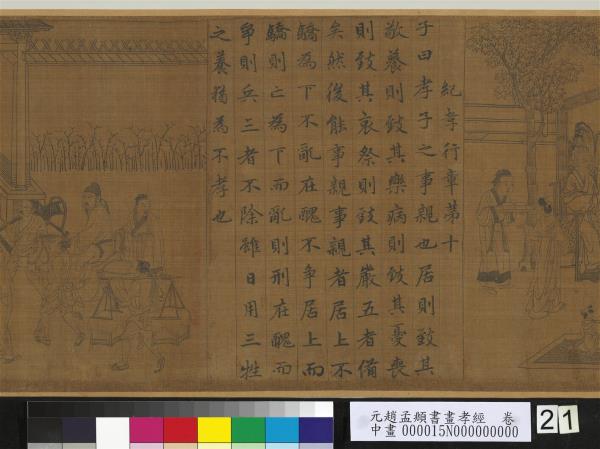 紀孝行章第十
子曰孝子之事親也居則致其
敬養則致其樂病則致其憂喪
則致其哀祭則致其嚴五者備
矣然後能事親事親者居上不
驕為下不亂在醜不爭居上而
驕則亡為下而亂則刑在醜而
爭則兵三者不除雖日用三牲
之養猶為不孝也
元趙孟頫書畫孝經 卷
中畫000015N000000000
21